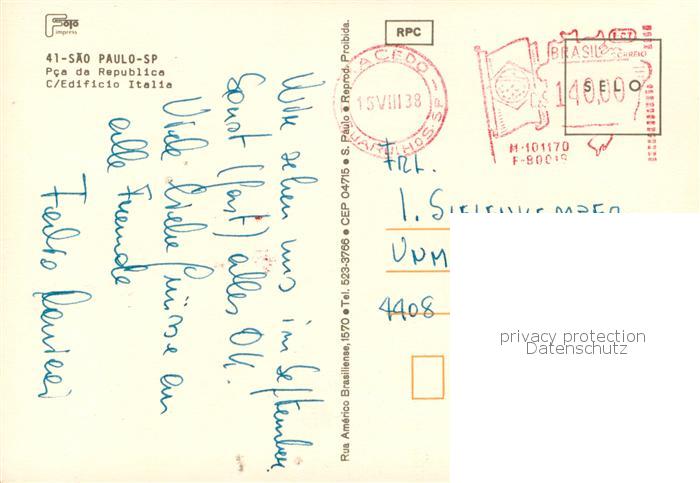 Foto
impress
41-SÃO PAULO-SP
Pça da Republica
C/Edificio Italia
Wir sehen uns im September.
Sonst (fast) alles OK.
Viele liebe Grüsse an
alle Freunde
Rua Américo Brasiliense, 1570 • Tel. 523-3766 • CEP 04715 • S. Paulo • Reprod. Proibida.
RPC
MACEDO
15 VIII 38
GUARULHOS-SP
BRASIL
CORREIO
SELO
140,00
M-101170
FRL.
I.
UNM
4408
privacy protection
Datenschutz